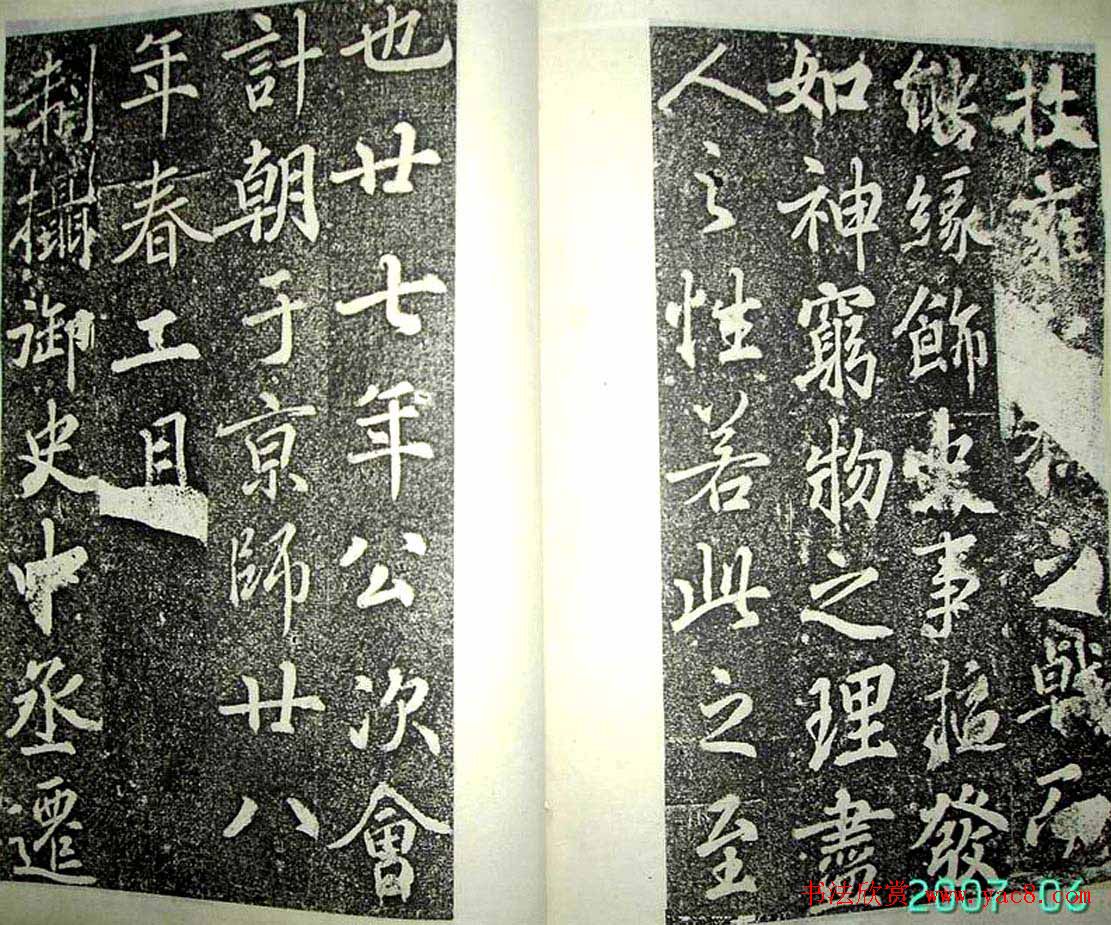 扶雍之
能緣飾吏事擿發
如神窮物之理盡
人之性若此之至
也廿七年公次會
計朝于京師廿八
年春
制攝御史中丞遷
书法欣赏 www.yac8.com
2007 06